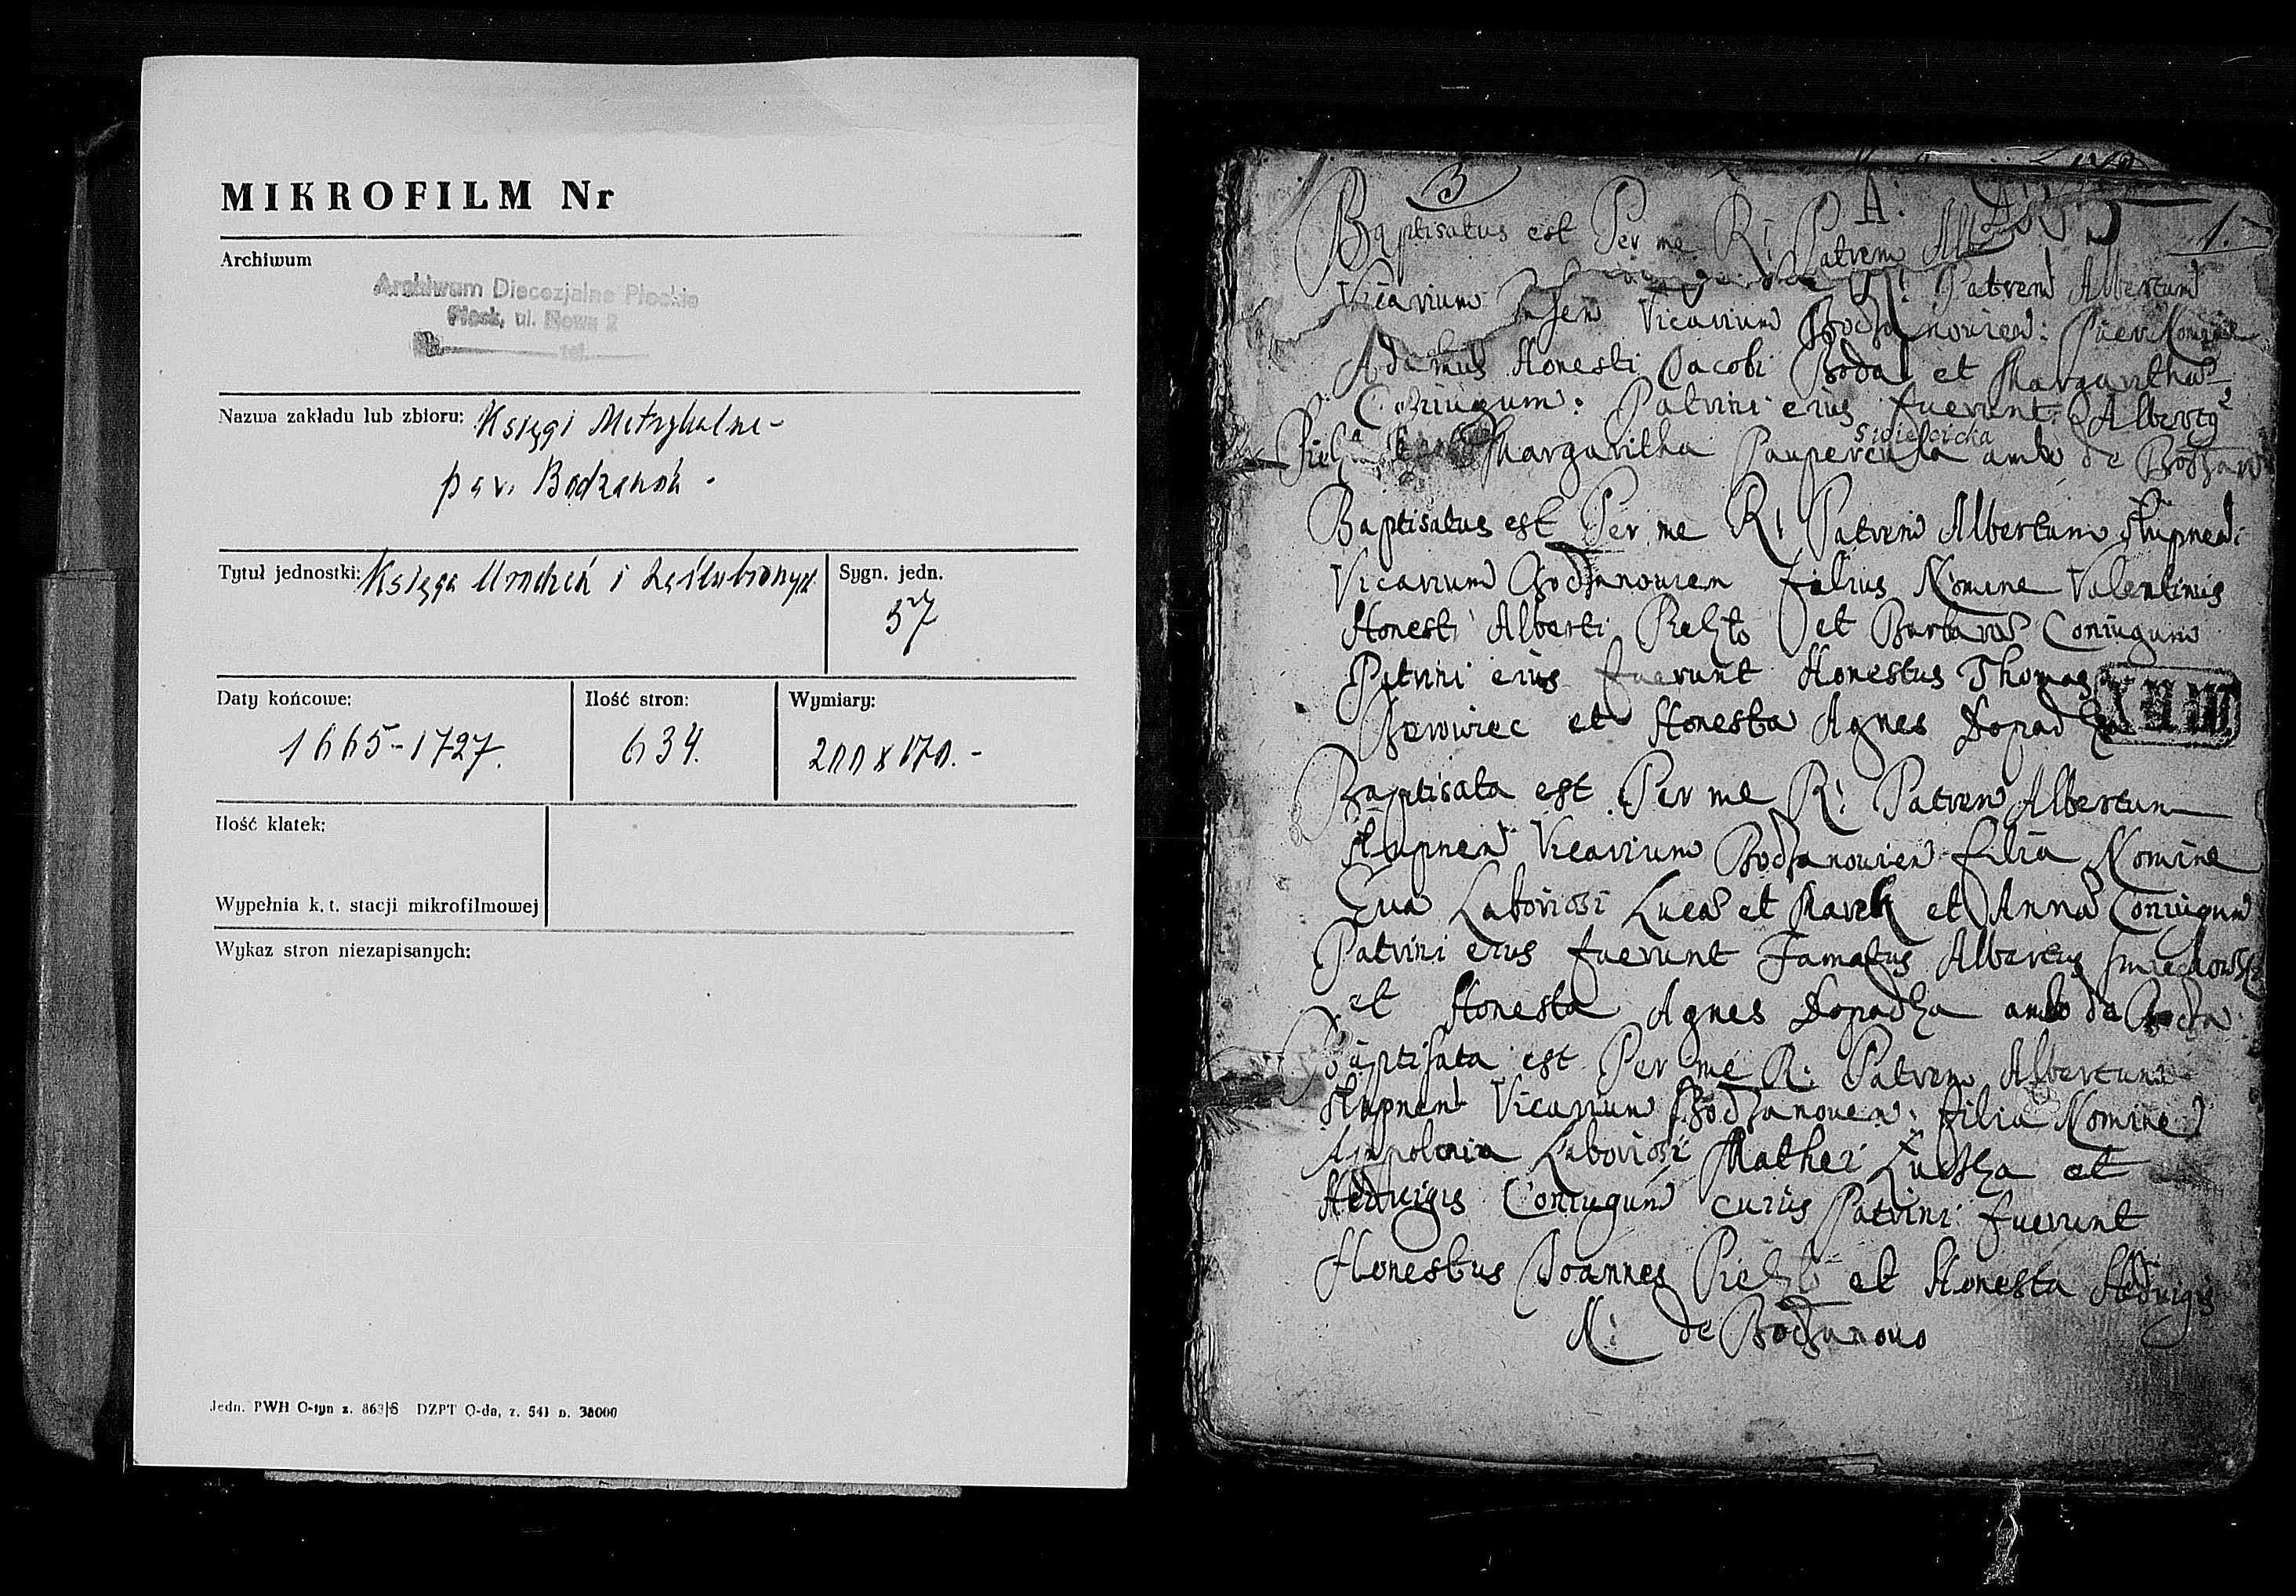 MIKROFILM Nr
Archiwum
Archiwum Diecezjalne Płockie
Płock, ul. Nowa 2
tel.
Nazwa zakładu lub zbioru: Księgi Metrykalne -
par. Bodzanów -
Tytuł jednostki: Księga Urodzeń i Zaślubionych.
Sygn. jedn.
57
Daty końcowe:
Ilość stron:
Wymiary:
1665-1727.
634.
200 x 170.-
Ilość klatek:
Wypełnia k. t. stacji mikrofilmowej
Wykaz stron niezapisanych:
Jedn. PWH O-tyn z. 863/S DZPT O-da, z. 541 n. 38000
3
A:
1.
Baptisatus est Per me R: Patrem
Patrem Albertum
Vicarium Vicarium Bodzanouien: Puer Nomine
Adamus Honesti Jacobi Boda et Margarithae
Coniugum: Patrini eius fuerunt: Albertus
Margaritha Paupercula ambo de Bodzan
Baptisatus est Per me R: Patrem Albertum Slupnen:
Vicarium Bodzanouien filius Nomine Valentinus
Honesti Alberti Pielzto et Barbarae Coniugum
Patrini eius fuerunt Honestus Thomas
et Honesta Agnes Dopadlza
Baptisata est Per me R: Patrem Albertum
Slupnen Vicarium Bodzanouien filia Nomine
Eua Laboriosi Lucae et Marek et Anna Coniugum
Patrini eius fuerunt Famatus Albertus
et Honesta Agnes Dopadlza ambo de Bodza
Baptisata est Per me R: Patrem Albertum
Slupnen Vicarium Bodzanouen: filia Nomine
Appolonia Laboriosi Mathei et
Hedwigis Coniugum cuius Patrini fuerunt
Honestus Joannes Pielzto et Honesta Hedwigis
N: de Bodzanouo